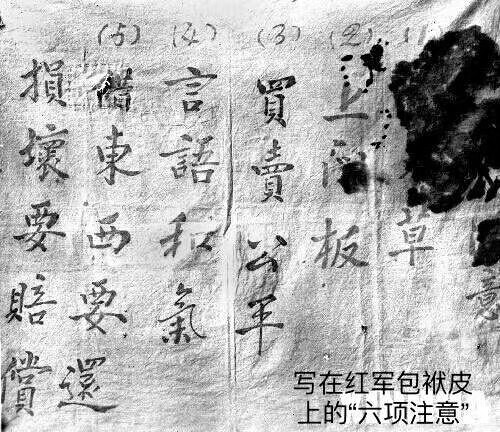 意
草
(2) 上門板
(3) 買賣公平
(4) 言語和氣
(5) 借東西要還
損壞要賠償
写在红军包袱皮
上的“六项注意”